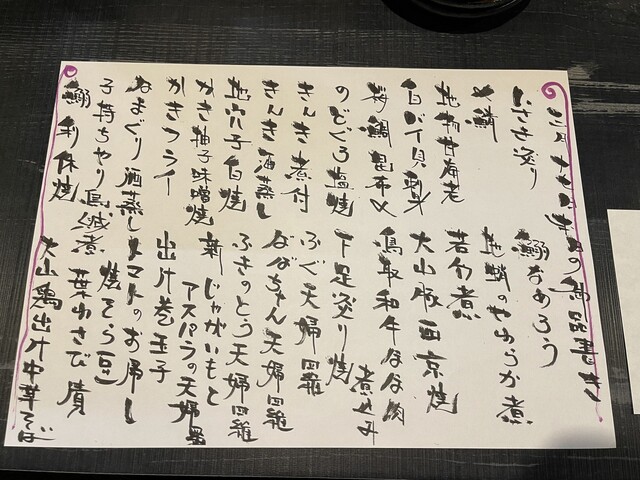 いさき炙り
〆鯖
地物甘海老
白バイ貝刺身
桜鯛昆布〆
のどぐろ塩焼
きんき煮付
きんき酒蒸し
地穴子白焼
かき柚子味噌焼
かきフライ
はまぐり酒蒸し
子持ちやり烏賊煮
鰤利休焼
鰤なめろう
地蛸のやわらか煮
若竹煮
大山豚西京焼
鳥取和牛ほほ肉煮込み
下足炙り焼
ふぐ天婦羅
ばばちゃん天婦羅
ふきのとう天婦羅
新じゃがいもと
アスパラの天婦羅
出汁巻玉子
トマトのお浸し
焼そら豆
葉わさび漬
大山鶏出汁中華そば